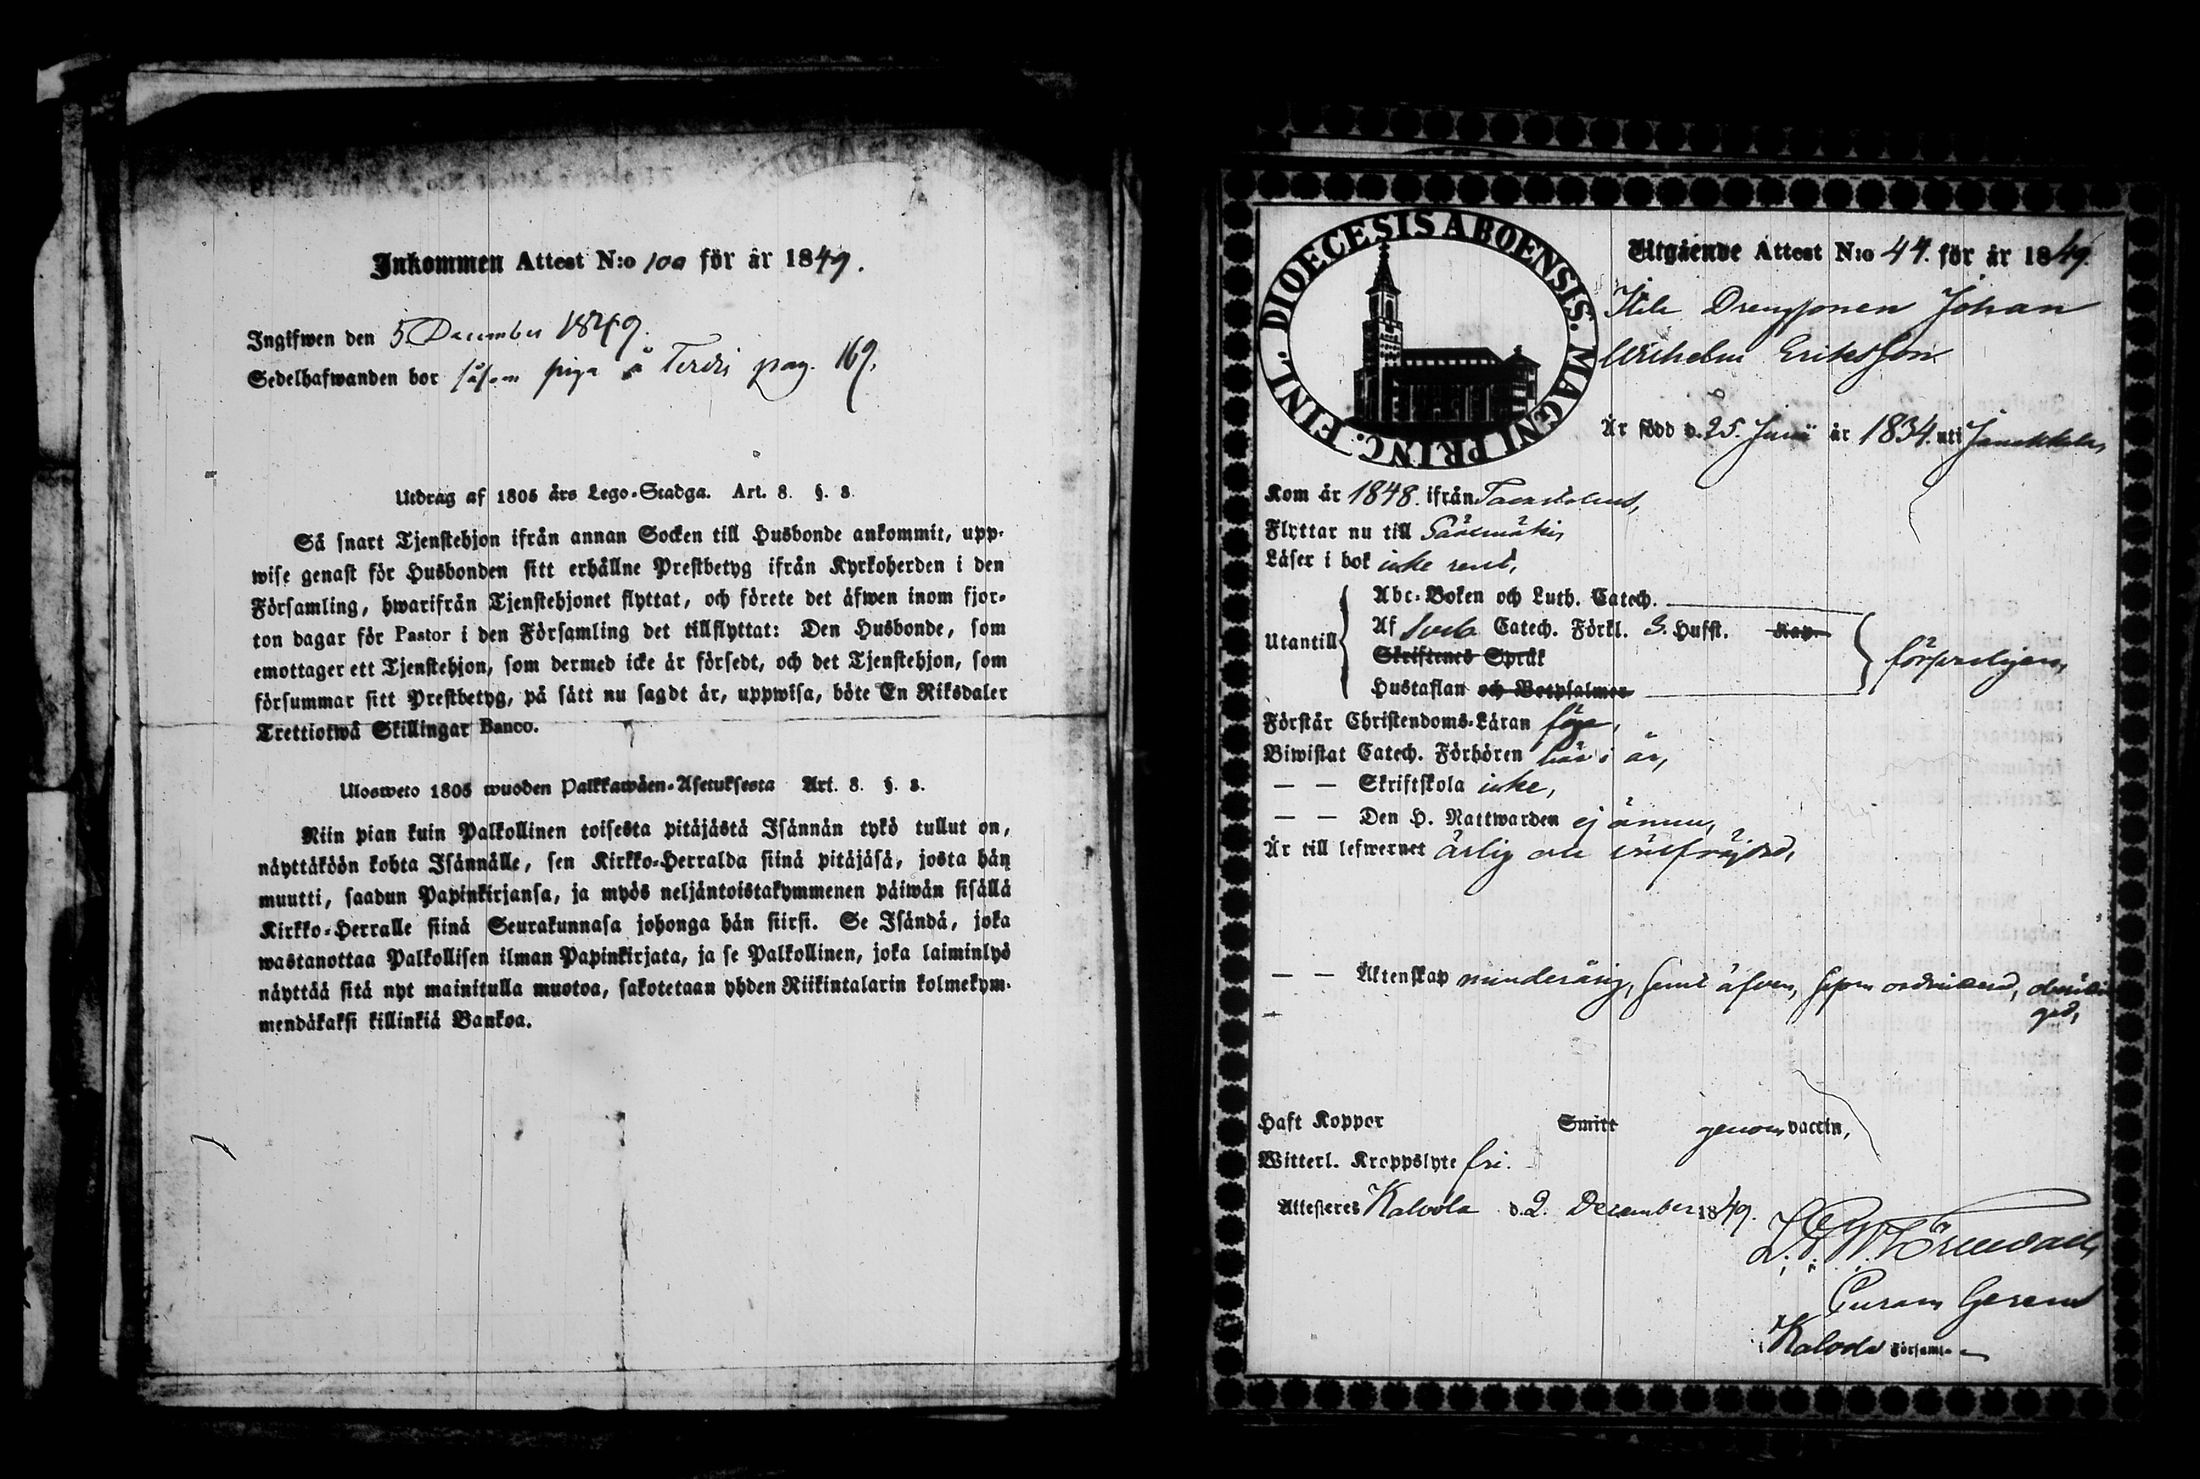 Inkommen Attest N:o 100 för år 1849.
Ingifwen den 5 December 1849.
Sedelhafwanden bor såsom piga å pag. 169.
Utdrag af 1805 års Lego-Stadga. Art. 8. §. 8.
Så snart Tjenstehjon ifrån annan Socken till Husbonde ankommit, upp-
wise genast för Husbonden sitt erhållne Prestbetyg ifrån Kyrkoherden i den
Församling, hwarifrån Tjenstehjonet flyttat, och förete det äfwen inom fjor-
ton dagar för Pastor i den Församling det tillflyttat: Den Husbonde, som
emottager ett Tjenstehjon, som dermed icke är försedt, och det Tjenstehjon, som
försummar sitt Prestbetyg, på sätt nu sagdt är, uppwisa, böte En Riksdaler
Trettiotwå Skillingar Banco.
Ulosweto 1805 wuoden Palkkawäen-Asetuksesta Art. 8. §. 8.
Niin pian kuin Palkollinen toisesta pitäjästä Isännän tykö tullut on,
näyttäköön kohta Isännälle, sen Kirkko-Herralda siinä pitäjäsä, josta hän
muutti, saadun Papinkirjansa, ja myös neljäntoistakymmenen päiwän sisällä
Kirkko-Herralle siinä Seurakunnasa johonga hän siirsi. Se Isändä, joka
wastanottaa Palkollisen ilman Papinkirjata, ja se Palkollinen, joka laiminlyö
näyttää sitä nyt mainitulla muotoa, sakotetaan yhden Riikintalarin kolmekym-
mendäkaksi killinkiä Bankoa.
FINL. DIOECESIS ABOENSIS. MAGNI PRINC.
Utgående Attest N:o 44. för år 1849.
Drengsonen Johan
Wilhelm Eriksson
Är född d. 25. Junii år 1834. uti Janakkala,
Kom år 1848. ifrån Tavastehus,
Flyttar nu till Sääksmäki,
Läser i bok icke rent,
Utantill
Abc-Boken och Luth. Catech.
Af Sveb. Catech. Förkl. 3. Hufst. Kap.
Skriftenes Språk
Hustaflan och Botpsalmer
försvarligen,
Förstår Christendoms-Läran föga,
Biwistat Catech. Förhören här i år,
— — Skriftskola icke,
— — Den H. Nattwarden ej ännu,
Är till lefwernet ärlig och välfräjdad,
— — Äktenskap minderårig, samt äfven, såsom ordinerad,
Haft Koppor Smitt genom vaccin,
Witterl. Kroppslyte fri.
Attesteres Kalvola d. 2. December 1849.
Curam Gerens
i Kalvola Församl.